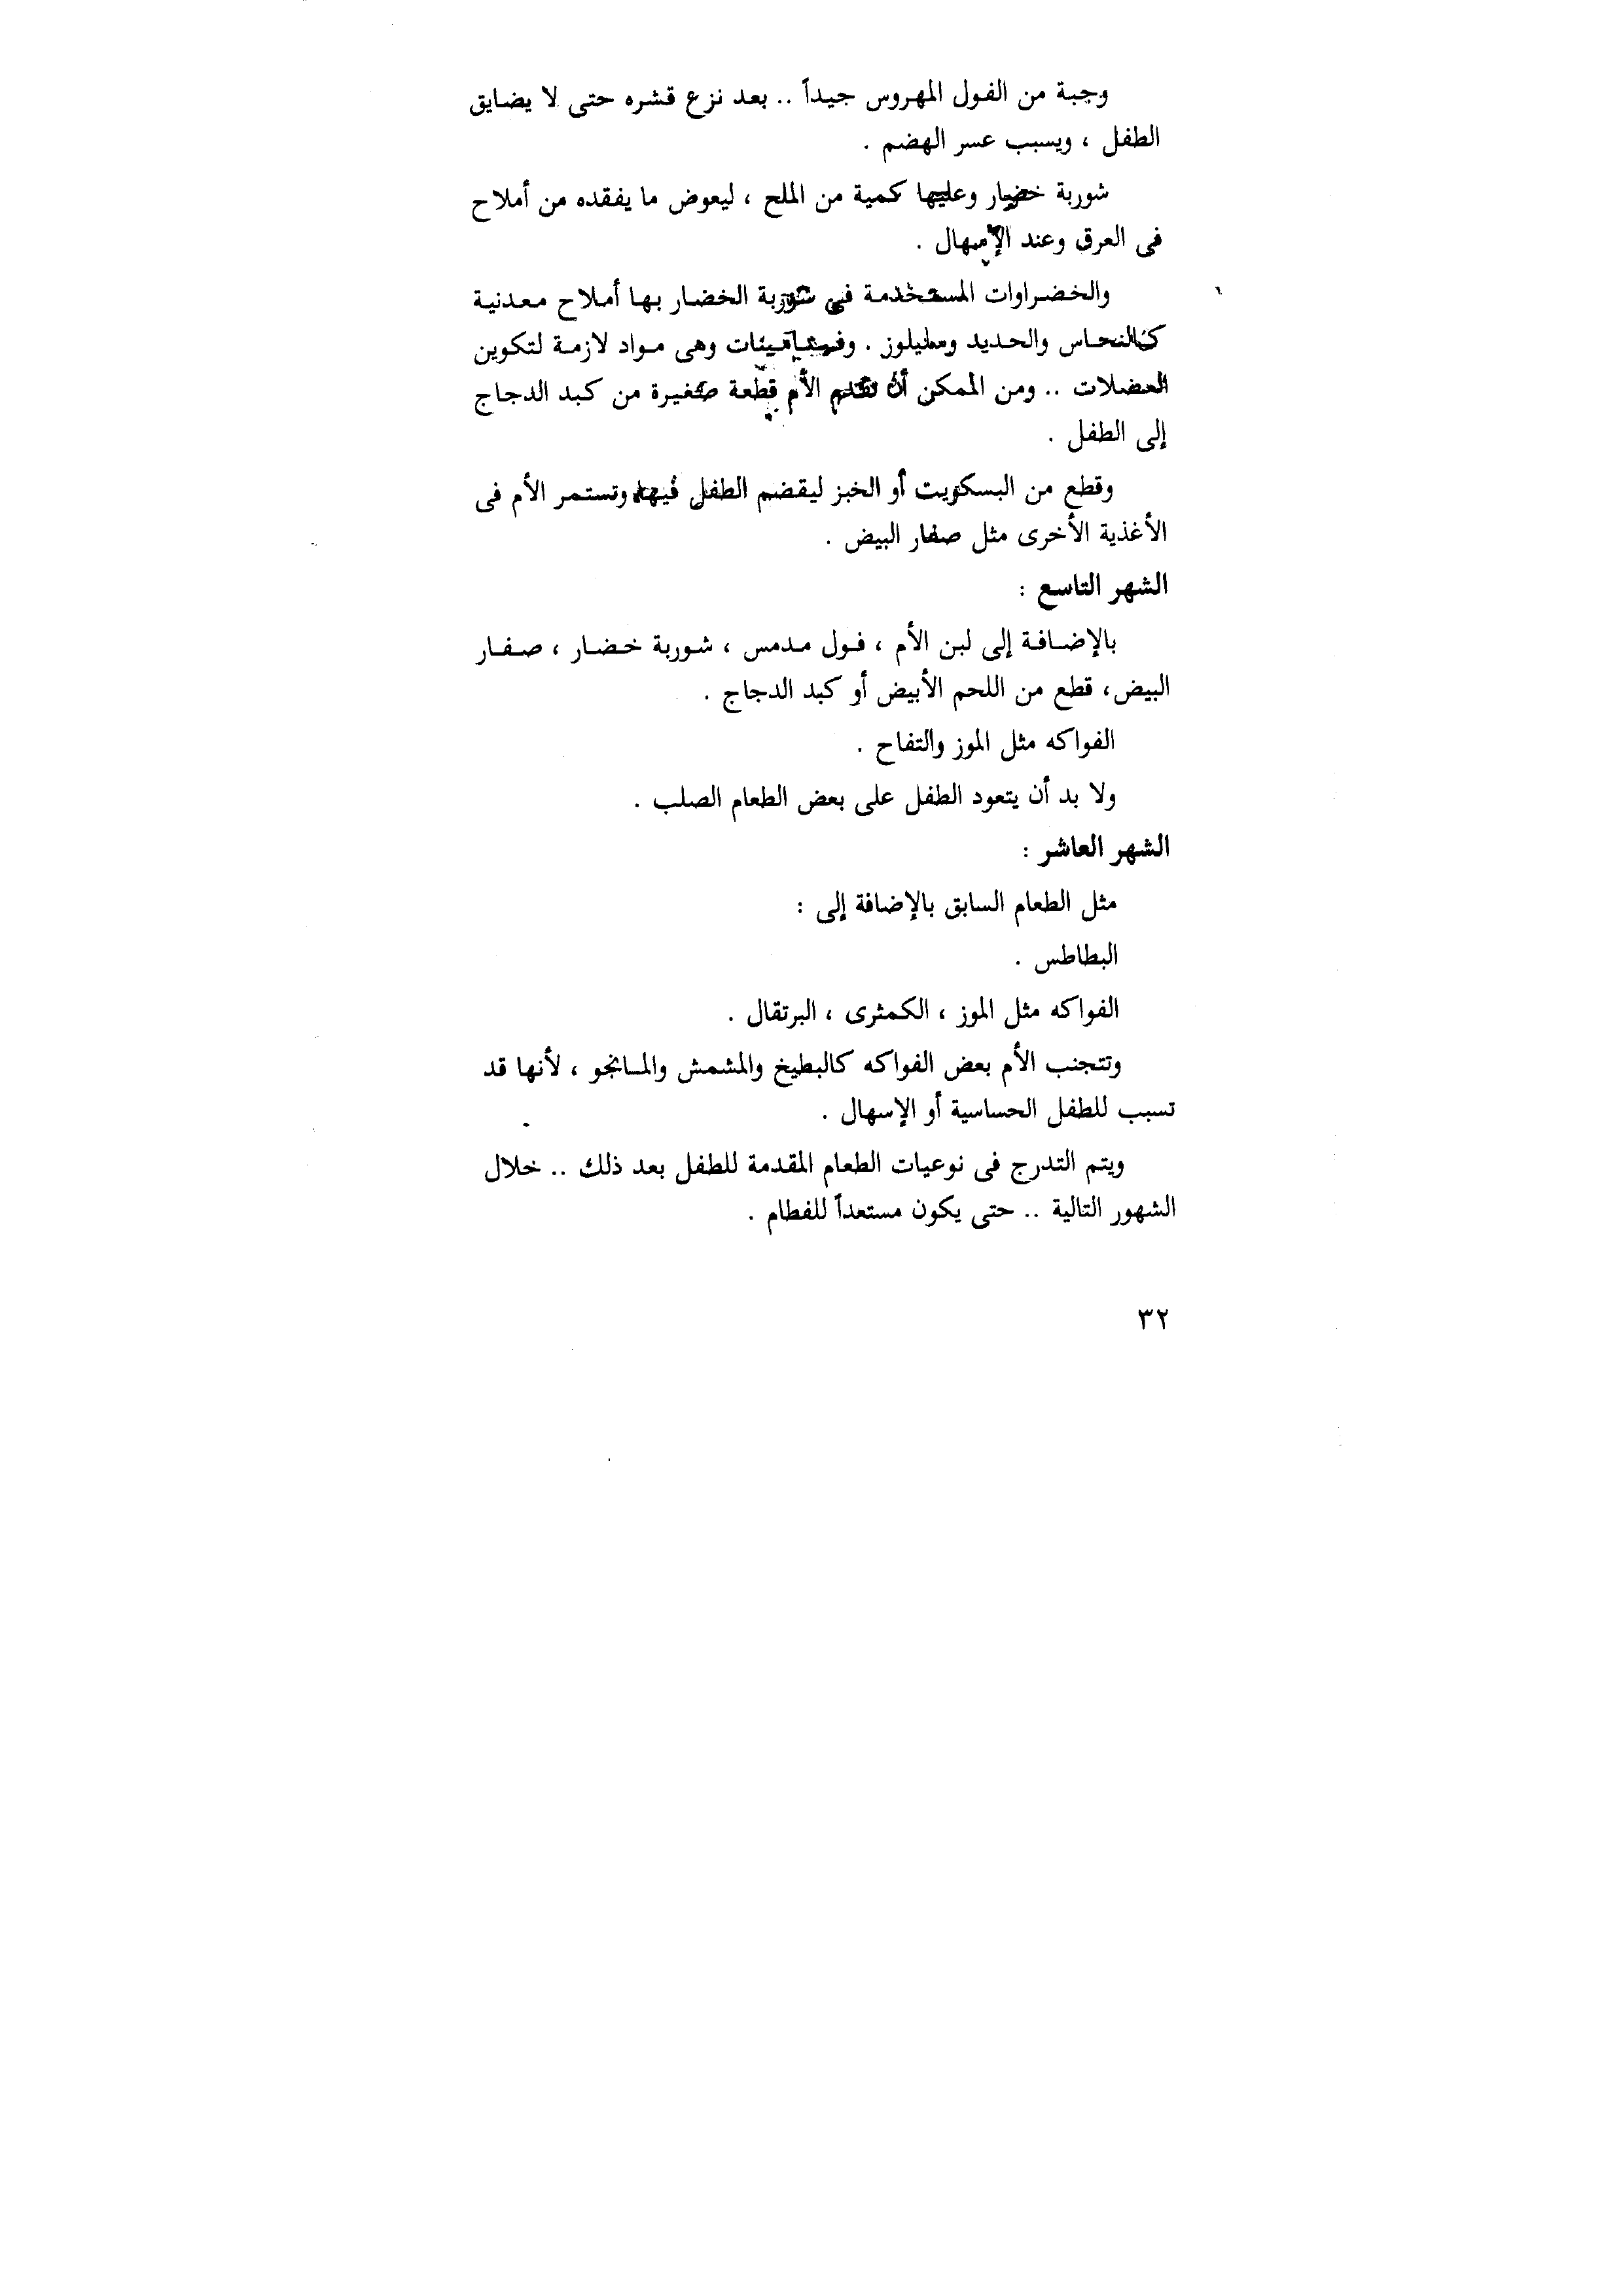 وجبة من الفول المهروس جيداً .. بعد نزع قشره حتى لا يضايق
الطفل ، ويسبب عسر الهضم .
شوربة خضار وعليها كمية من الملح ، ليعوض ما يفقده من أملاح
فى العرق وعند الإسهال .
والخضراوات المستخدمة فى شوربة الخضار بها أملاح معدنية
كالنحاس والحديد وسليلوز . وهى مواد لازمة لتكوين
العضلات .. ومن الممكن أن تقدم الأم قطعة صغيرة من كبد الدجاج
إلى الطفل .
وقطع من البسكويت أو الخبز ليقضم الطفل فيها وتستمر الأم فى
الأغذية الأخرى مثل صفار البيض .
الشهر التاسع :
بالإضافة إلى لبن الأم ، فول مدمس ، شوربة خضار ، صفار
البيض، قطع من اللحم الأبيض أو كبد الدجاج .
الفواكه مثل الموز والتفاح .
ولا بد أن يتعود الطفل على بعض الطعام الصلب .
الشهر العاشر :
مثل الطعام السابق بالإضافة إلى :
البطاطس .
الفواكه مثل الموز ، الكمثرى ، البرتقال .
وتتجنب الأم بعض الفواكه كالبطيخ والمشمش والمانجو ، لأنها قد
تسبب للطفل الحساسية أو الإسهال .
ويتم التدرج فى نوعيات الطعام المقدمة للطفل بعد ذلك .. خلال
الشهور التالية .. حتى يكون مستعداً للفطام .
٣٢